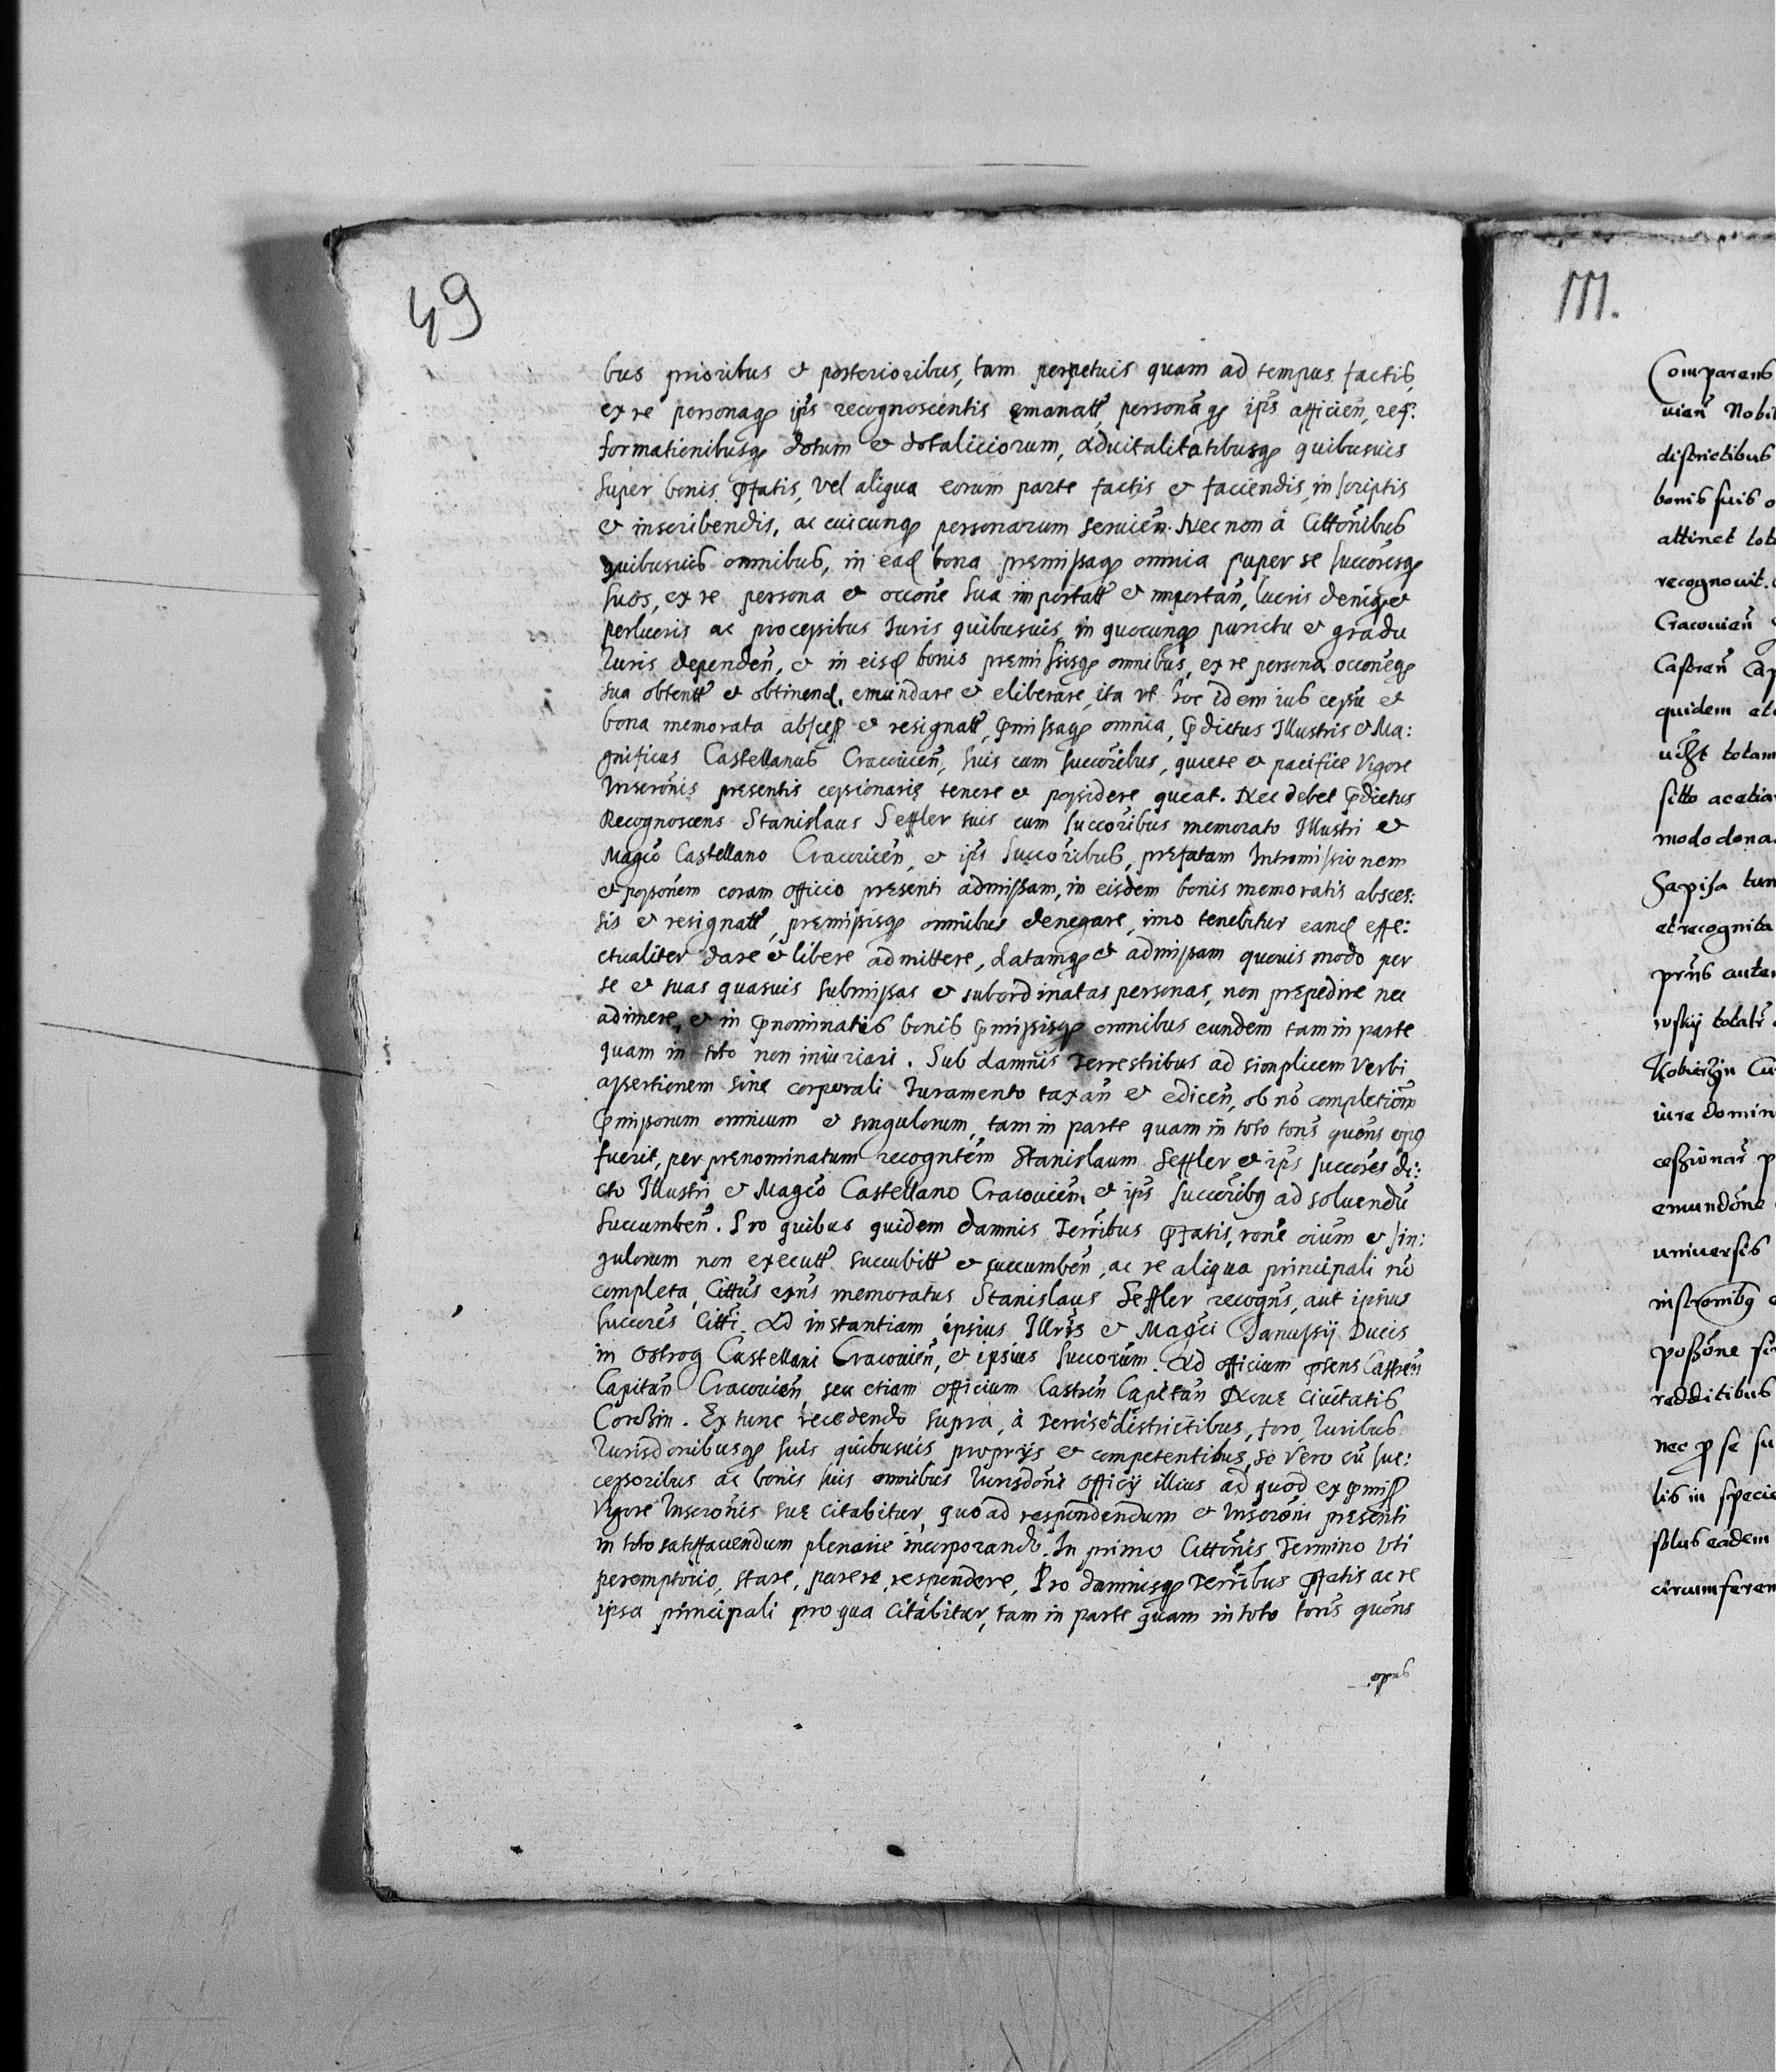 49
bus prioribus et posterioribus, tam perpetuis quam ad tempus factis,
ex re personaq3 ip̃s recognoscentis emanatt̃, personãq3 ip̃s afficien̄, ref:
formationibusq3 dotum et dotaliciorum, advitalitatibusq3 quibusuis
super bonis p̃fatis, vel aliqua eorum parte factis et faciendis, in scriptis
et inscribendis, ac cuicunq3 personarum seruien̄. Nec non á Cittõnibus
quibusuis omnibus, in ead bona premissaq3 omnia super se succoresq3
suos, ex re persona et occõne sua importatt̃ et importan̄, lucris deniq3 et
perlucris ac processibus Iuris quibusuis, in quocunq3 punctu et gradu
Iuris dependen̄, et in eisd bonis premissisq3 omnibus, ex re persona occõneq3
sua obtentt̃ et obtinend, emundare et eliberare, ita vt hoc idem ius cessũ et
bona memorata abscess et resignatt̃, p̃missaq3 omnia, p̃dictus Illustris et Ma:
gnificus Castellanus Cracouien̄, suis cum succoribus, quiete et pacifice Vigore
Inscrõnis presentis cessionarie tenere et possidere queat. Nec debet p̃dictus
Recognoscens Stanislaus Seffler suis cum succoribus memorato Illustri et
Magco Castellano Cracouien̄, et ip̃s Succoribus, prefatam Intromissionem
et possonem coram officio presenti admissam, in eisdem bonis memoratis absces:
sis et resignatt̃, premissisq3 omnibus denegare, imo tenebitur eand effe:
ctualiter dare et libere admittere, datamq3 et admissam quouis modo per
se et suas quasuis submissas et subordinatas personas, non prepedire nec
adimere, et in p̃nominatis bonis p̃missisq3 omnibus eundem tam in parte
quam in toto non iniuriari. Sub damnis Terrestribus ad simplicem Verbi
assertionem sine corporali Iuramento taxan̄ et edicen̄, ob nõ completiõ
p̃missorum omnium et singulorum, tam in parte quam in toto tons quõns op9
fuerit, per prenominatum recogntem Stanislaum Seffler et ip̃s succores di:
cto Illustri et Magco Castellano Cracouien̄ et ip̃s succorib9 ad soluendũ
succumben̄. Pro quibus quidem damnis Terribus p̃fatis, rone oium et sin:
gulorum non executt̃ succubitt̃ et succumben̄, ac re aliqua principali nõ
completa, Cittus exñs memoratus Stanislaus Seffler recogns, aut ipsius
succores Citti. Ad instantiam ipsius Illris et Magci Janussij Ducis
in Ostrog Castellani Cracouien̄, et ipsius succorum. Ad officium p̃sens Castren̄
Capitan̄ Cracouien̄, seu etiam officium Castren̄ Capitan̄ Noue Ciuitatis
Corchin. Ex tunc recedendo supra, à Terris et districtibus, foro, Iuribus
Iurisdõnibusq3 suis quibusuis proprijs et competentibus, se vero cũ suc:
cessoribus ac bonis suis omnibus Iurisdõni officij illius ad quod ex p̃miss
Vigore Inscrõnis sue citabitur, quo ad respondendum et Inscrõni presenti
in toto satisfaciendum plenarie incorporando. In primo Cittõnis Termino vti
peremptorio, stare, parere, respondere, Pro damnisq3 Terribus p̃fatis ac re
ipsa principali pro qua citabitur, tam in parte quam in toto tons quõns
opus
111.
Comparens
uien̄ Nobil
districtibus
bonis suis o
attinet tot
recognouit.
Cracouien̄
Castren̄ Cap
quidem
totam
sitto ac etia
modo dona
Sapisa tum
et recognita
prñs autem
totalr
iure domin
cessionar p
emundõne
uniuersis
inscrõnib9
possõne
redditibus
nec p se su
lis in specie
solus eadem
circumferen